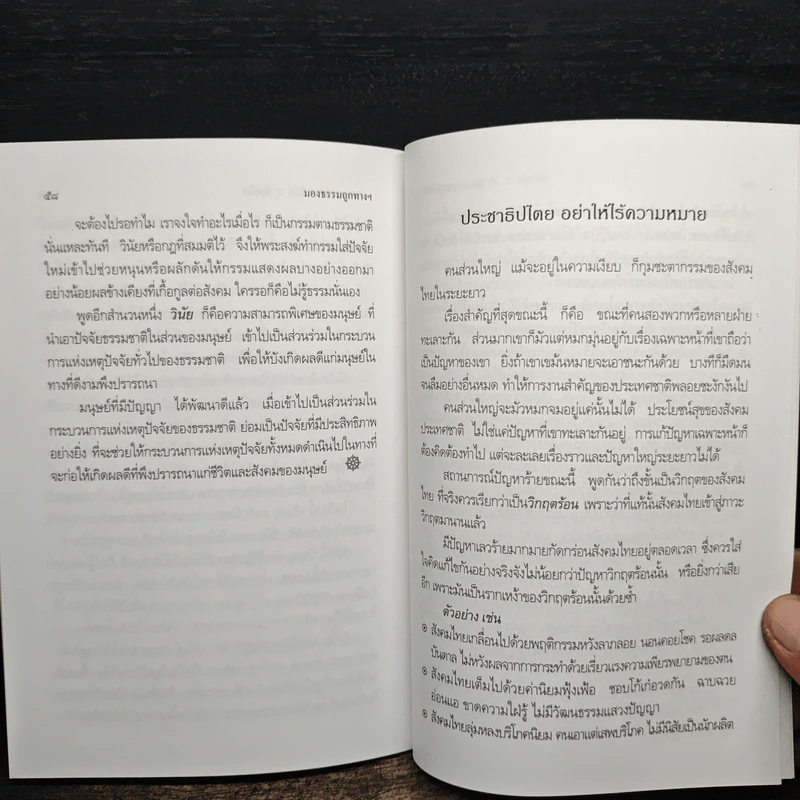 ๕๘
มองธรรมถูกทางฯ
จะต้องไปรอทำไม เราจงใจทำอะไรเมื่อไร ก็เป็นกรรมตามธรรมชาติ
นั่นแหละทันที วินัยหรือกฎที่สมมติไว้ จึงให้พระสงฆ์ทำกรรมใส่ปัจจัย
ใหม่เข้าไปช่วยหนุนหรือผลักดันให้กรรมแสดงผลบางอย่างออกมา
อย่างน้อยผลข้างเคียงที่เกื้อกูลต่อสังคม ใครรอก็คือไม่รู้ธรรมนั่นเอง
พูดอีกสำนวนหนึ่ง วินัย ก็คือความสามารถพิเศษของมนุษย์ ที่
นำเอาปัจจัยธรรมชาติในส่วนของมนุษย์ เข้าไปเป็นส่วนร่วมในกระบวน
การแห่งเหตุปัจจัยทั่วไปของธรรมชาติ เพื่อให้บังเกิดผลดีแก่มนุษย์ใน
ทางที่ดีงามพึงปรารถนา
มนุษย์ที่มีปัญญา ได้พัฒนาดีแล้ว เมื่อเข้าไปเป็นส่วนร่วมใน
กระบวนการแห่งเหตุปัจจัยของธรรมชาติ ย่อมเป็นปัจจัยที่มีประสิทธิภาพ
อย่างยิ่ง ที่จะช่วยให้กระบวนการแห่งเหตุปัจจัยทั้งหมดดำเนินไปในทางที่
จะก่อให้เกิดผลดีที่พึงปรารถนาแก่ชีวิตและสังคมของมนุษย์
ประชาธิปไตย อย่าให้ไร้ความหมาย
คนส่วนใหญ่ แม้จะอยู่ในความเงียบ ก็กุมชะตากรรมของสังคม
ไทยในระยะยาว
เรื่องสำคัญที่สุดขณะนี้ ก็คือ ขณะที่คนสองพวกหรือหลายฝ่าย
ทะเลาะกัน ส่วนมากเขาก็มัวแต่หมกมุ่นอยู่กับเรื่องเฉพาะหน้าที่เขาถือว่า
เป็นปัญหาของเขา ยิ่งถ้าเขาเข้มหมายจะเอาชนะกันด้วย บางทีก็มืดมน
จนลืมอย่างอื่นหมด ทำให้การงานสำคัญของประเทศชาติพลอยชะงักงันไป
คนส่วนใหญ่จะมัวหมกจมอยู่แค่นั้นไม่ได้ ประโยชน์สุขของสังคม
ประเทศชาติ ไม่ใช่แค่ปัญหาที่เขาทะเลาะกันอยู่ การแก้ปัญหาเฉพาะหน้าก็
ต้องคิดต้องทำไป แต่จะละเลยเรื่องราวและปัญหาใหญ่ระยะยาวไม่ได้
สถานการณ์ปัญหาร้ายขณะนี้ พูดกันว่าถึงขั้นเป็นวิกฤตของสังคม
ไทย ที่จริงควรเรียกว่าเป็นวิกฤตร้อน เพราะว่าที่แท้นั้นสังคมไทยเข้าสู่ภาวะ
วิกฤตมานานแล้ว
มีปัญหาเลวร้ายมากมายกัดกร่อนสังคมไทยอยู่ตลอดเวลา ซึ่งควรใส่
ใจคิดแก้ไขกันอย่างจริงจังไม่น้อยกว่าปัญหาวิกฤตร้อนนั้น หรือยิ่งกว่าเสีย
อีก เพราะมันเป็นรากเหง้าของวิกฤตร้อนนั้นด้วยซ้ำ
ตัวอย่าง เช่น
๏ สังคมไทยเกลื่อนไปด้วยพฤติกรรมหวังลาภลอย นอนคอยโชค รอผลดล
บันดาล ไม่หวังผลจากการกระทำด้วยเรี่ยวแรงความเพียรพยายามของตน
๏ สังคมไทยเต็มไปด้วยค่านิยมฟุ้งเฟ้อ ชอบโก้เก๋อวดกัน ฉาบฉวย
อ่อนแอ ขาดความใฝ่รู้ ไม่มีวัฒนธรรมแสวงปัญญา
๏ สังคมไทยลุ่มหลงบริโภคนิยม คนเอาแต่เสพบริโภค ไม่มีนิสัยเป็นนักผลิต